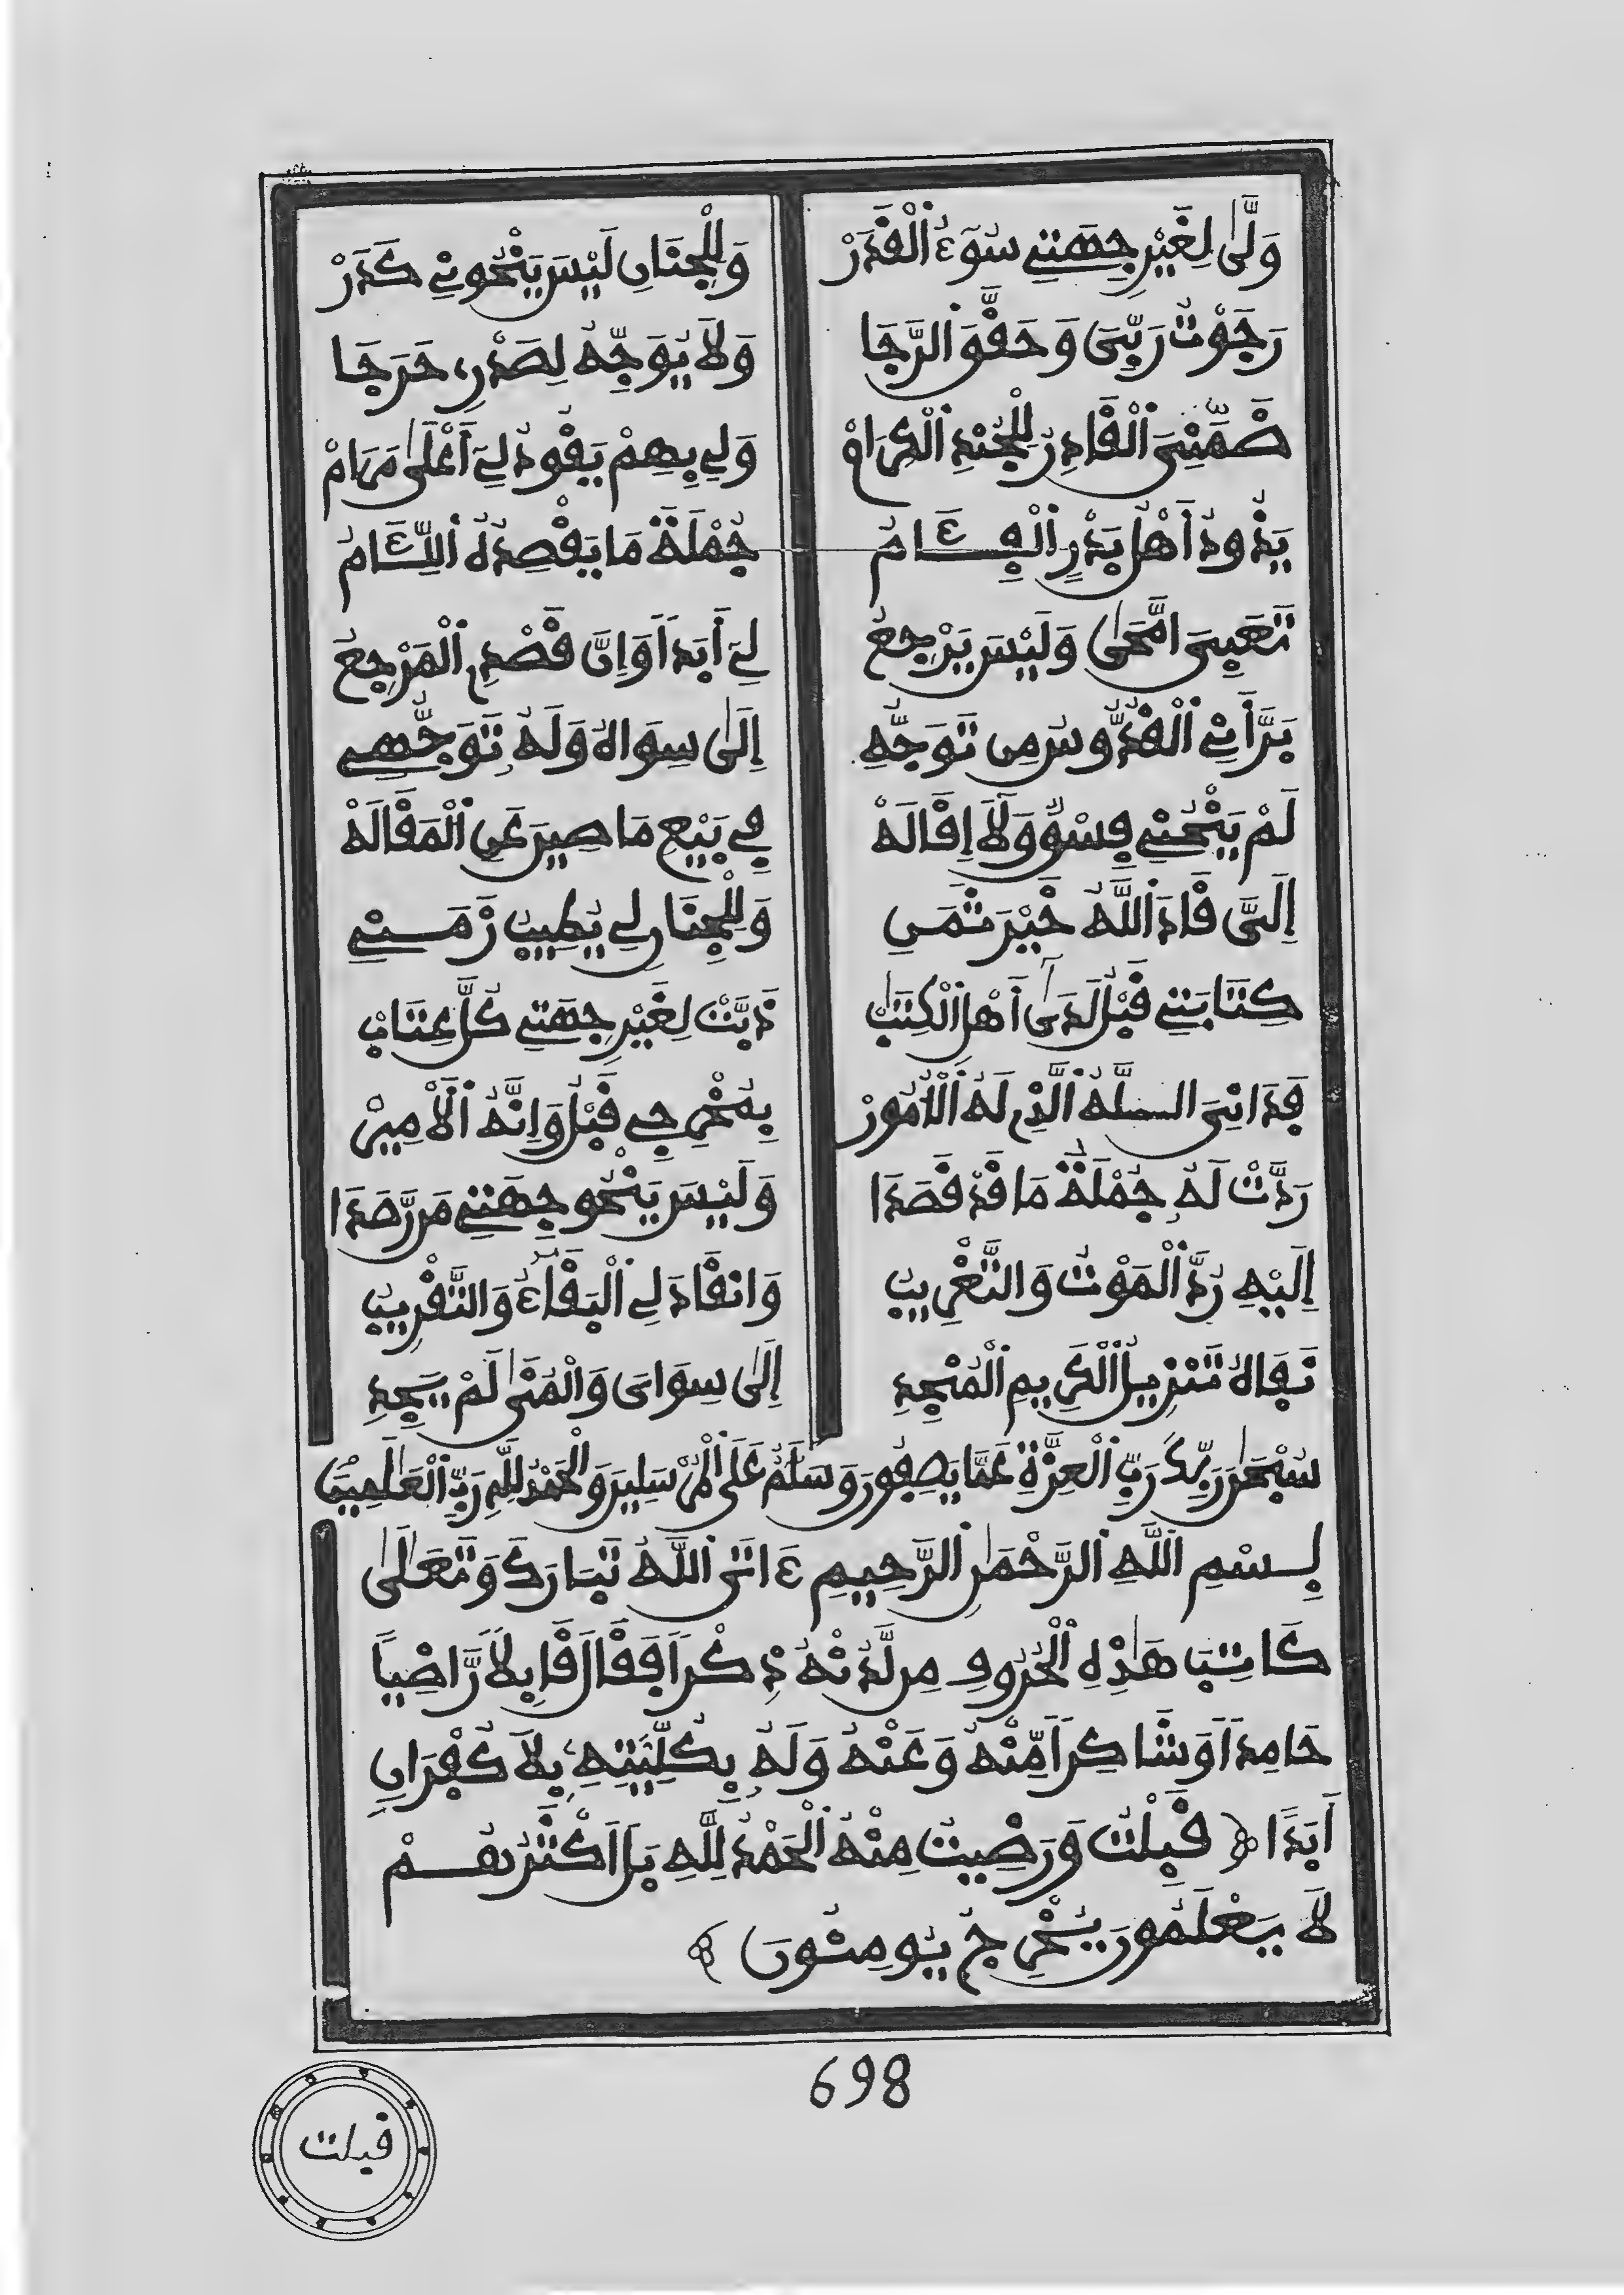 وَلَّى لِغَيْرِ جِهَتِي سُوٓءُ الْقَدَرْ وَلِلْجِنَانِ لَيْسَ يَنْحُونِي كَدَرْ
رَجَوْتُ رَبِّيَ وَحَقَّقَ الرَّجَا وَلَا يُوَجِّهُ لِصَدْرِي حَرَجَا
ضَمَّنِيَ الْقَادِرُ لِلْجُنْدِ الْكِرَامْ وَلِي بِهِمْ يَقُودُ لِيَ أَعْلَى مَرَامْ
يَذُودُ أَهْلُ بَدْرٍ الْفِئَامُ جُمْلَةَ مَا يَقْصِدُهُ اللِّئَامُ
تَعَبِيَ امَّحَى وَلَيْسَ يَرْجِعُ لِيَ أَبَدًا وَإِنَّ قَصْدِي الْمَرْجِعُ
بَرَّأَنِي الْقُدُّوسُ مِن تَوَجُّهِ إِلَى سِوَاهُ وَلَهُ تَوَجُّهِي
لَمْ يَنْحُنِي فِسْقٌ وَلَا إِقَالَهْ فِي بَيْعِ مَا صِينَ عَنِ الْمَقَالَهْ
إِلَيَّ قَادَ اللَّهُ خَيْرَ ثَمَنِ وَلِلْجِنَانِ لِي يَطِيبُ زَمَنِي
كِتَابَتِي قَبْلُ لَدَى أَهْلِ الْكِتَٰبْ ذَبَّتْ لِغَيْرِ جِهَتِي كُلَّ عِتَابْ
فَدَانِيَ اللَّهُ الَّذِي لَهُ الْأُمُورْ بِمُخْرِجِي قَبْلُ وَإِنَّهُ الْأَمِينْ
رَدَّتْ لَهُ جُمْلَةُ مَا قَدْ قَصَدَا وَلَيْسَ يَنْحُو جِهَتِي مَن رَّصَدَا
إِلَيْهِ رُدَّ الْمَوْتُ وَالتَّغْرِيبُ وَانْقَادَ لِي الْبَقَآءُ وَالتَّقْرِيبُ
نَفَاهُ تَنْزِيلُ الْكَرِيمِ الْمُنْجِدِ إِلَى سِوَايَ وَالْمُنَى لَمْ يَجِدِ
سُبْحَٰنَ رَبِّكَ رَبِّ الْعِزَّةِ عَمَّا يَصِفُونَ وَسَلَٰمٌ عَلَى الْمُرْسَلِينَ وَالْحَمْدُ لِلَّهِ رَبِّ الْعَٰلَمِينَ
بِسْمِ اللَّهِ الرَّحْمَٰنِ الرَّحِيمِ ءَاتَى اللَّهُ تَبَارَكَ وَتَعَٰلَىٰ
كَاتِبَ هَٰذِهِ الْحُرُوفِ مِن لَّدُنْهُ ذِكْرًا فَقَالَ قَابِلًا رَّاضِيًا
حَامِدًا وَشَاكِرًا مِّنْهُ وَعَنْهُ وَلَهُ بِكُلِّيَّتِهِ بِلَا كُفْرَانٍ
أَبَدًا ﴿ قَبِلْتُ وَرَضِيتُ مِنْهُ الْحَمْدُ لِلَّهِ بَلْ أَكْثَرُهُمْ
لَا يَعْلَمُونَ يُخْرِجُ يُومِنُونَ ﴾
698
قبلت